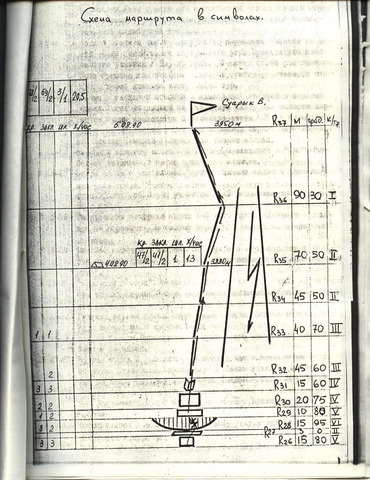 Схема маршрута в символах.
69/2 3/1 20,5
Суарык В.
кр. закл шл. х/час 6.08.90 3950м R37 М град. к/тр
R36 90 30 I
кр. закл. шл. х/час
47/2 47/2 1 13
4.08.90 R35 70 50 II
R34 45 50 II
1 1 R33 40 70 III
2 R32 45 60 III
3 3 R31 15 60 IV
R30 20 75 V
2 2 R29 10 80 V
1 2 R28 15 95 VI
3 2 R27 3 0 II
3 3 R26 15 80 V